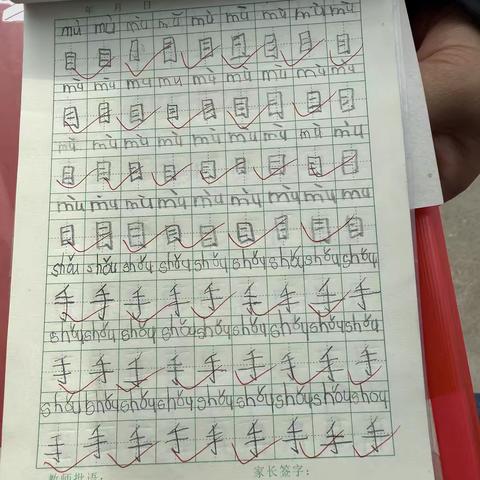 年 月 日
mù mù mù mù mù mù mù mù mù
目 目 目 目 目 目 目 目 目
mù mù mù mu mù mù mù mù mù
目 目 目 目 目 目 目 目 目
mù mù mù mù mù mù mù mù mù
目 目 目 目 目 目 目 目 目
mù mù mù mù mù mù mù mù mù
目 目 目 目 目 目 目 目 目
shǒu shǒu shǒu shǒu shǒu shǒu shǒu shǒu shǒu
手 手 手 手 手 手 手 手 手
shǒu shǒu shǒu shǒu shǒu shǒu shǒu shǒu shǒu
手 手 手 手 手 手 手 手 手
shǒu shǒu shǒu shǒu shǒu shǒu shǒu shǒu shǒu
手 手 手 手 手 手 手 手 手
教师批语： 家长签字：